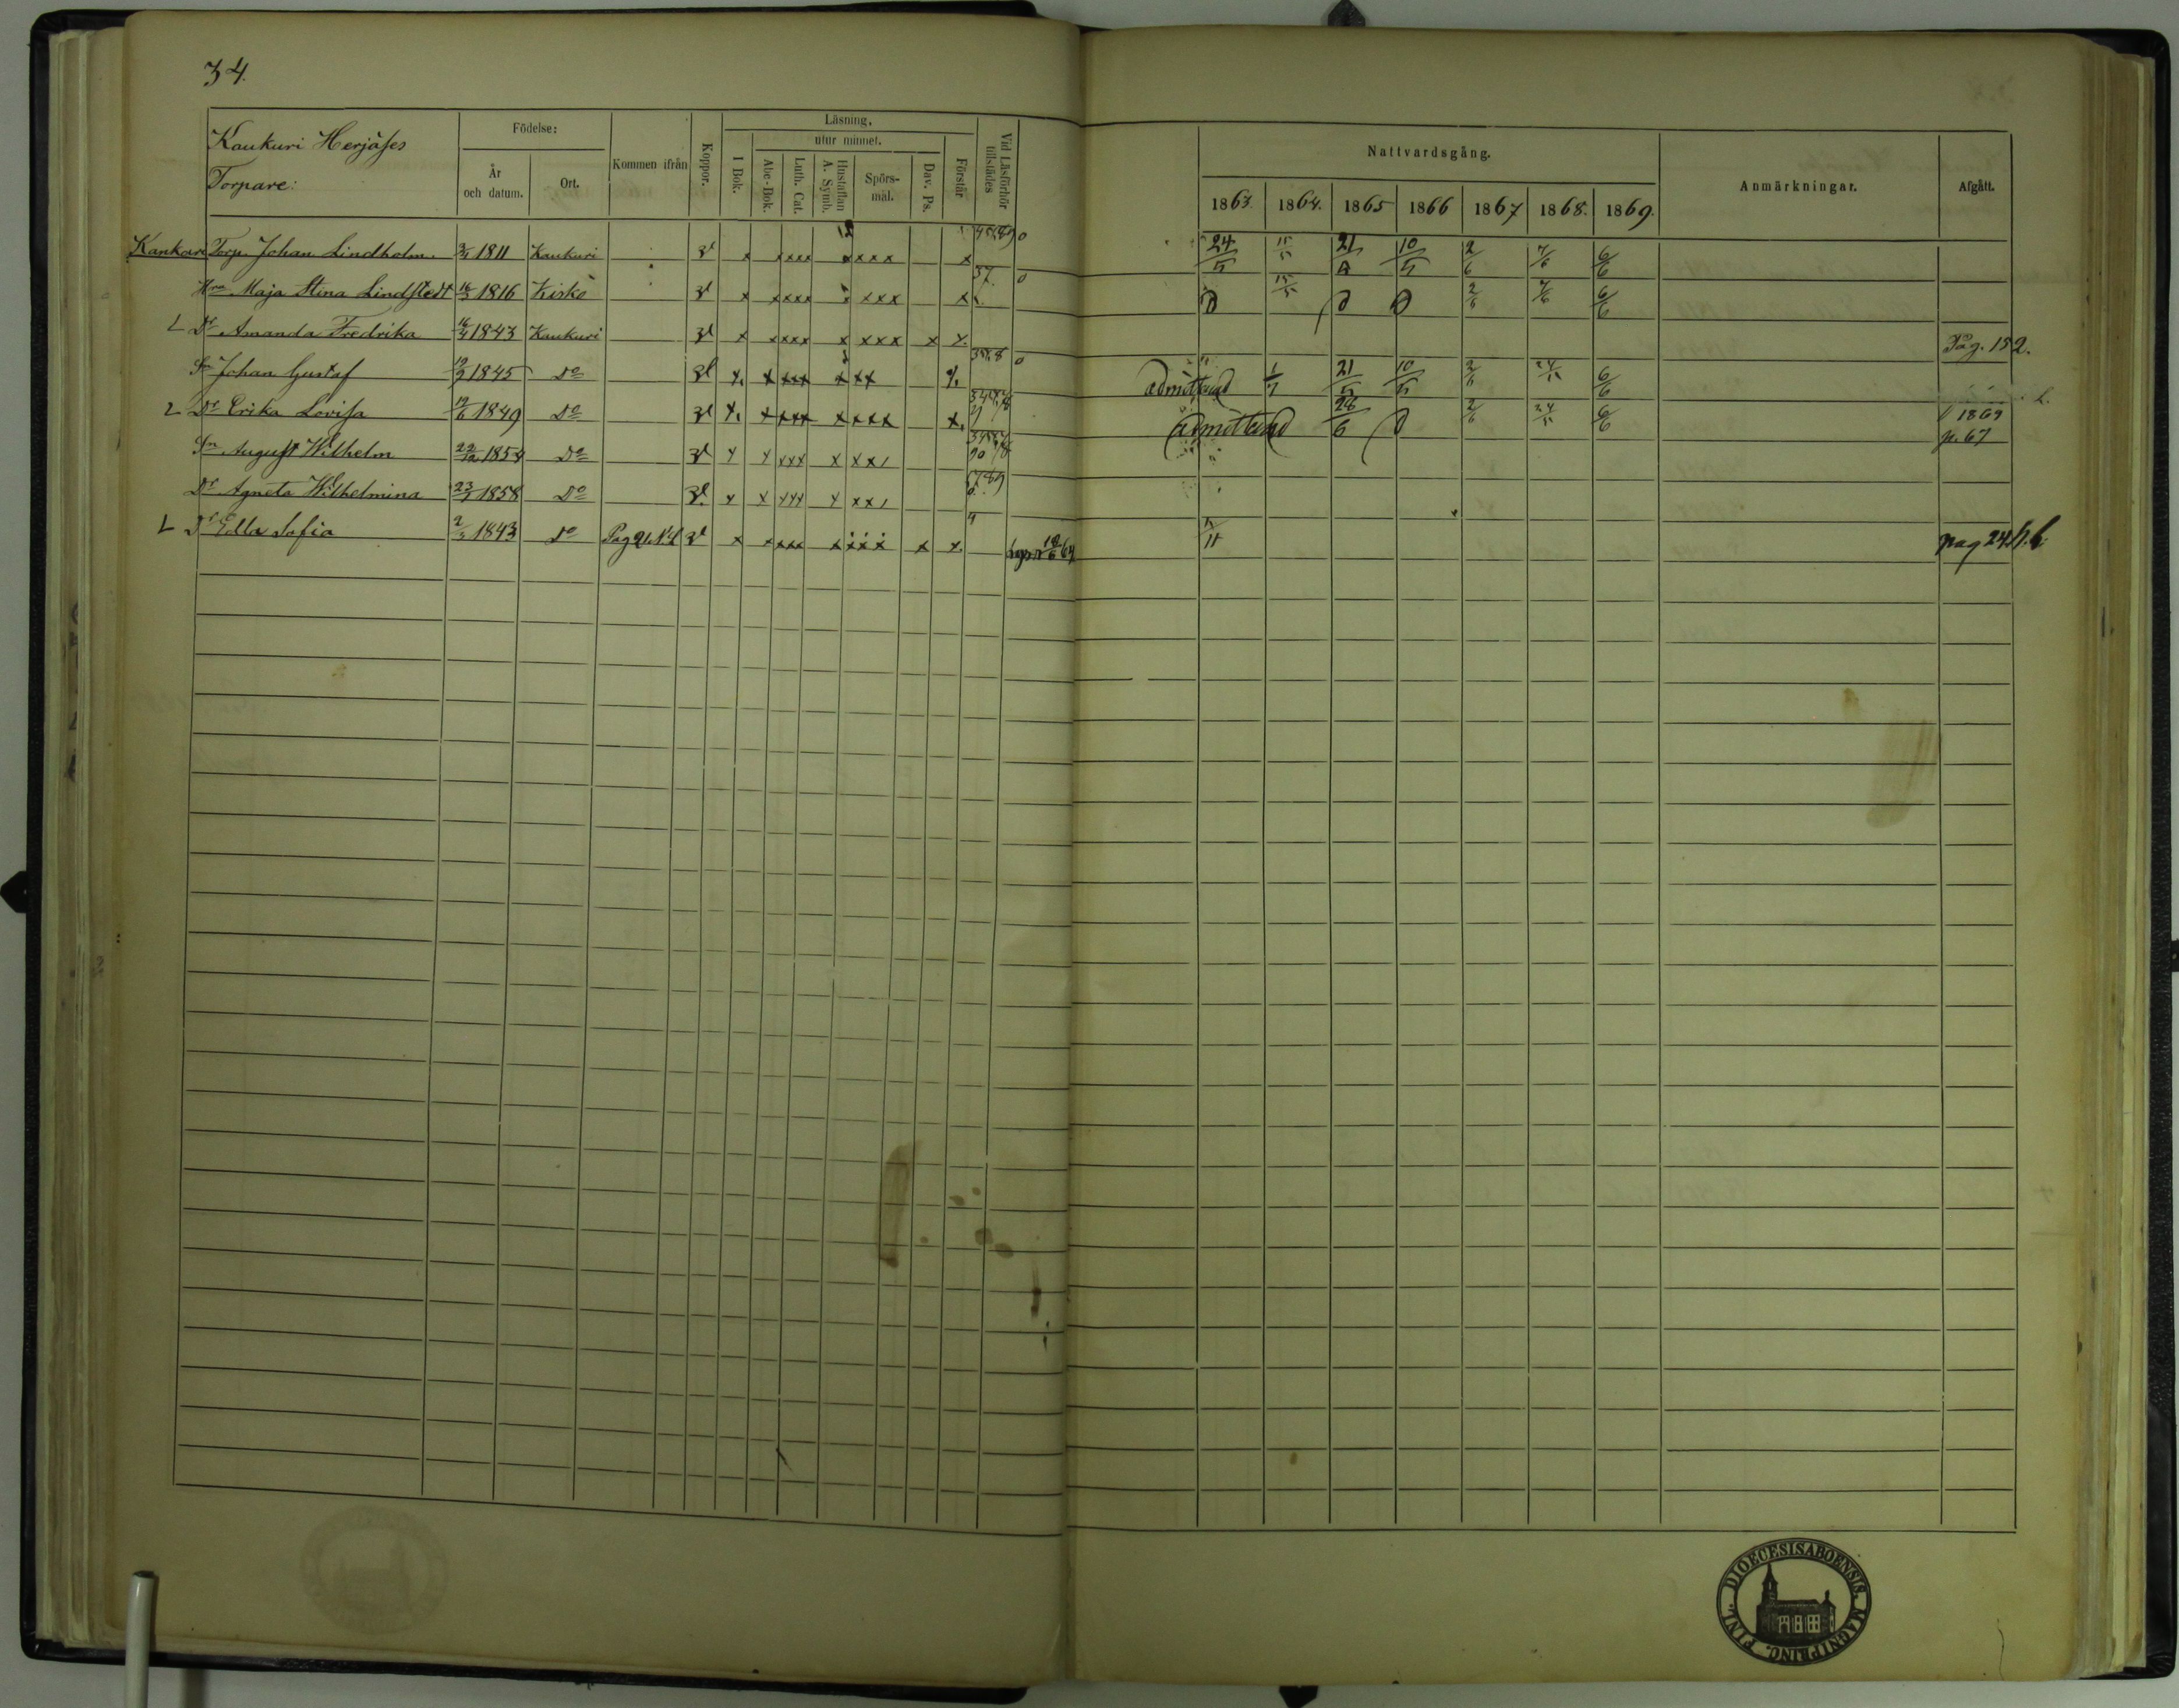 34.
Kaukuri Herjäses
Torpare:
Födelse:
År och datum.
Ort.
Kommen ifrån
Koppor.
Läsning.
I Bok.
utur minnet.
Abc-Bok.
Luth. Cat.
Hustaflan A. Symb.
Spörs-mål.
Dav. Ps.
Förstår
Vid Läsförhör tillstädes
Nattvardsgång.
1863. 1864. 1865 1866 1867 1868. 1869.
Anmärkningar.
Afgått.
Kaukuri Torp. Johan Lindholm. 1811 Kaukuri x xxxx xxxx x 0 24/5 15/5 21 10/5 2/6 7/6 6/6
Hru Maja Stina Lindstedt 16/3 1816 Kisko x xxxx xxx x 0 15/5 2/6 7/6 6/6
Dr Amanda Fredrika 16/4 1843 Kaukuri x xxxx x xxx x x Pag. 152.
Sn Johan Gustaf 19/9 1845 Do x. x xxx x xx x. 0 admitterad 1/7 21/5 10/5 2/6 24/5 6/6
Dr Erika Lovisa 19/6 1849 Do x. xxxx xxxx x. admitterad 24/6 2/6 24/5 6/6 1869 p. 67
Sn August Wilhelm 22/12 1854 Do x x xxx x xx
Dr Agneta Wilhelmina 23/7 1858 Do x x xxx x xx
Dr Ulla Sofia 2/3 1843 Do x xxxx x x x. 5/11 pag 24
FINL. DIOECESIS ABOENSIS. MAGNI PRINC.